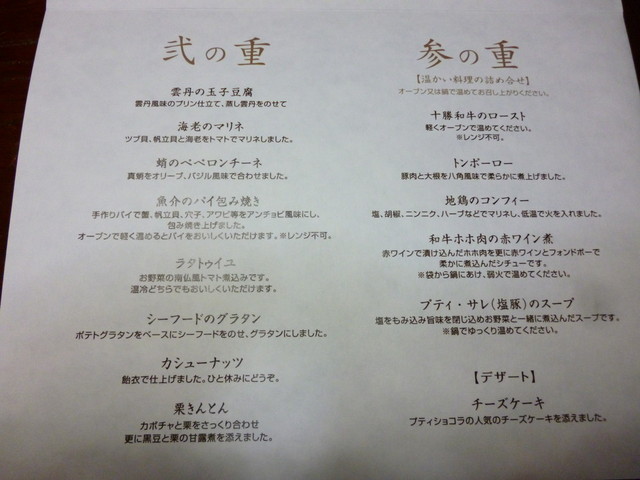 弐の重
雲丹の玉子豆腐
雲丹風味のプリン仕立て、蒸し雲丹をのせて
海老のマリネ
ツブ貝、帆立貝と海老をトマトでマリネしました。
蛸のペペロンチーネ
真蛸をオリーブ、バジル風味で合わせました。
魚介のパイ包み焼き
手作りパイで蟹、帆立貝、穴子、アワビ等をアンチョビ風味にし、
包み焼き上げました。
オーブンで軽く温めるとパイをおいしくいただけます。※レンジ不可。
ラタトゥイユ
お野菜の南仏風トマト煮込みです。
温冷どちらでもおいしくいただけます。
シーフードのグラタン
ポテトグラタンをベースにシーフードをのせ、グラタンにしました。
カシューナッツ
飴衣で仕上げました。ひと休みにどうぞ。
栗きんとん
カボチャと栗をさっくり合わせ
更に黒豆と栗の甘露煮を添えました。
参の重
【温かい料理の詰め合せ】
オーブン又は鍋で温めてお召し上がりください。
十勝和牛のロースト
軽くオーブンで温めてください。
※レンジ不可。
トンポーロー
豚肉と大根を八角風味で柔らかに煮上げました。
地鶏のコンフィー
塩、胡椒、ニンニク、ハーブなどでマリネし、低温で火を入れました。
和牛ホホ肉の赤ワイン煮
赤ワインで漬け込んだホホ肉を更に赤ワインとフォンドボーで
柔かに煮込んだシチューです。
※袋から鍋にあけ、弱火で温めてください。
プティ・サレ(塩豚)のスープ
塩をもみ込み旨味を閉じ込めお野菜と一緒に煮込んだスープです。
※鍋でゆっくり温めてください。
【デザート】
チーズケーキ
プティショコラの人気のチーズケーキを添えました。